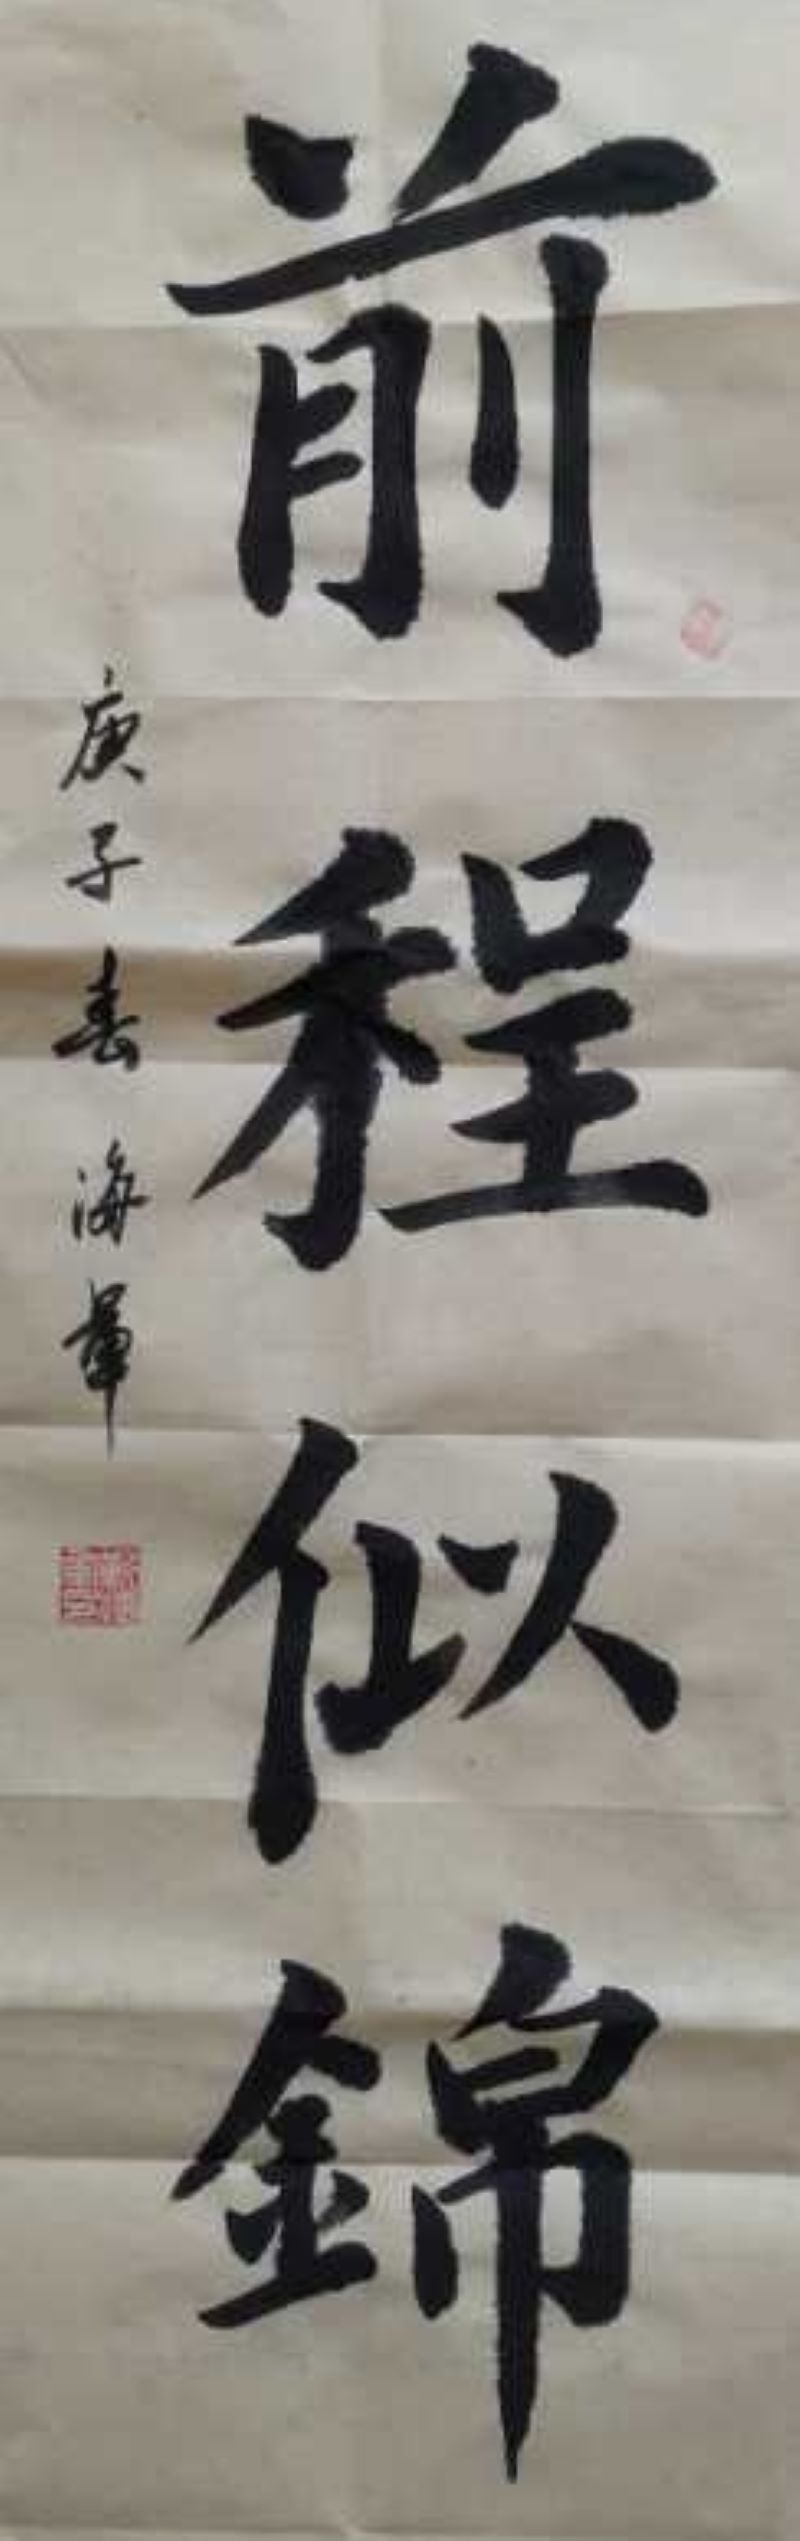 前程似錦
庚子春海華